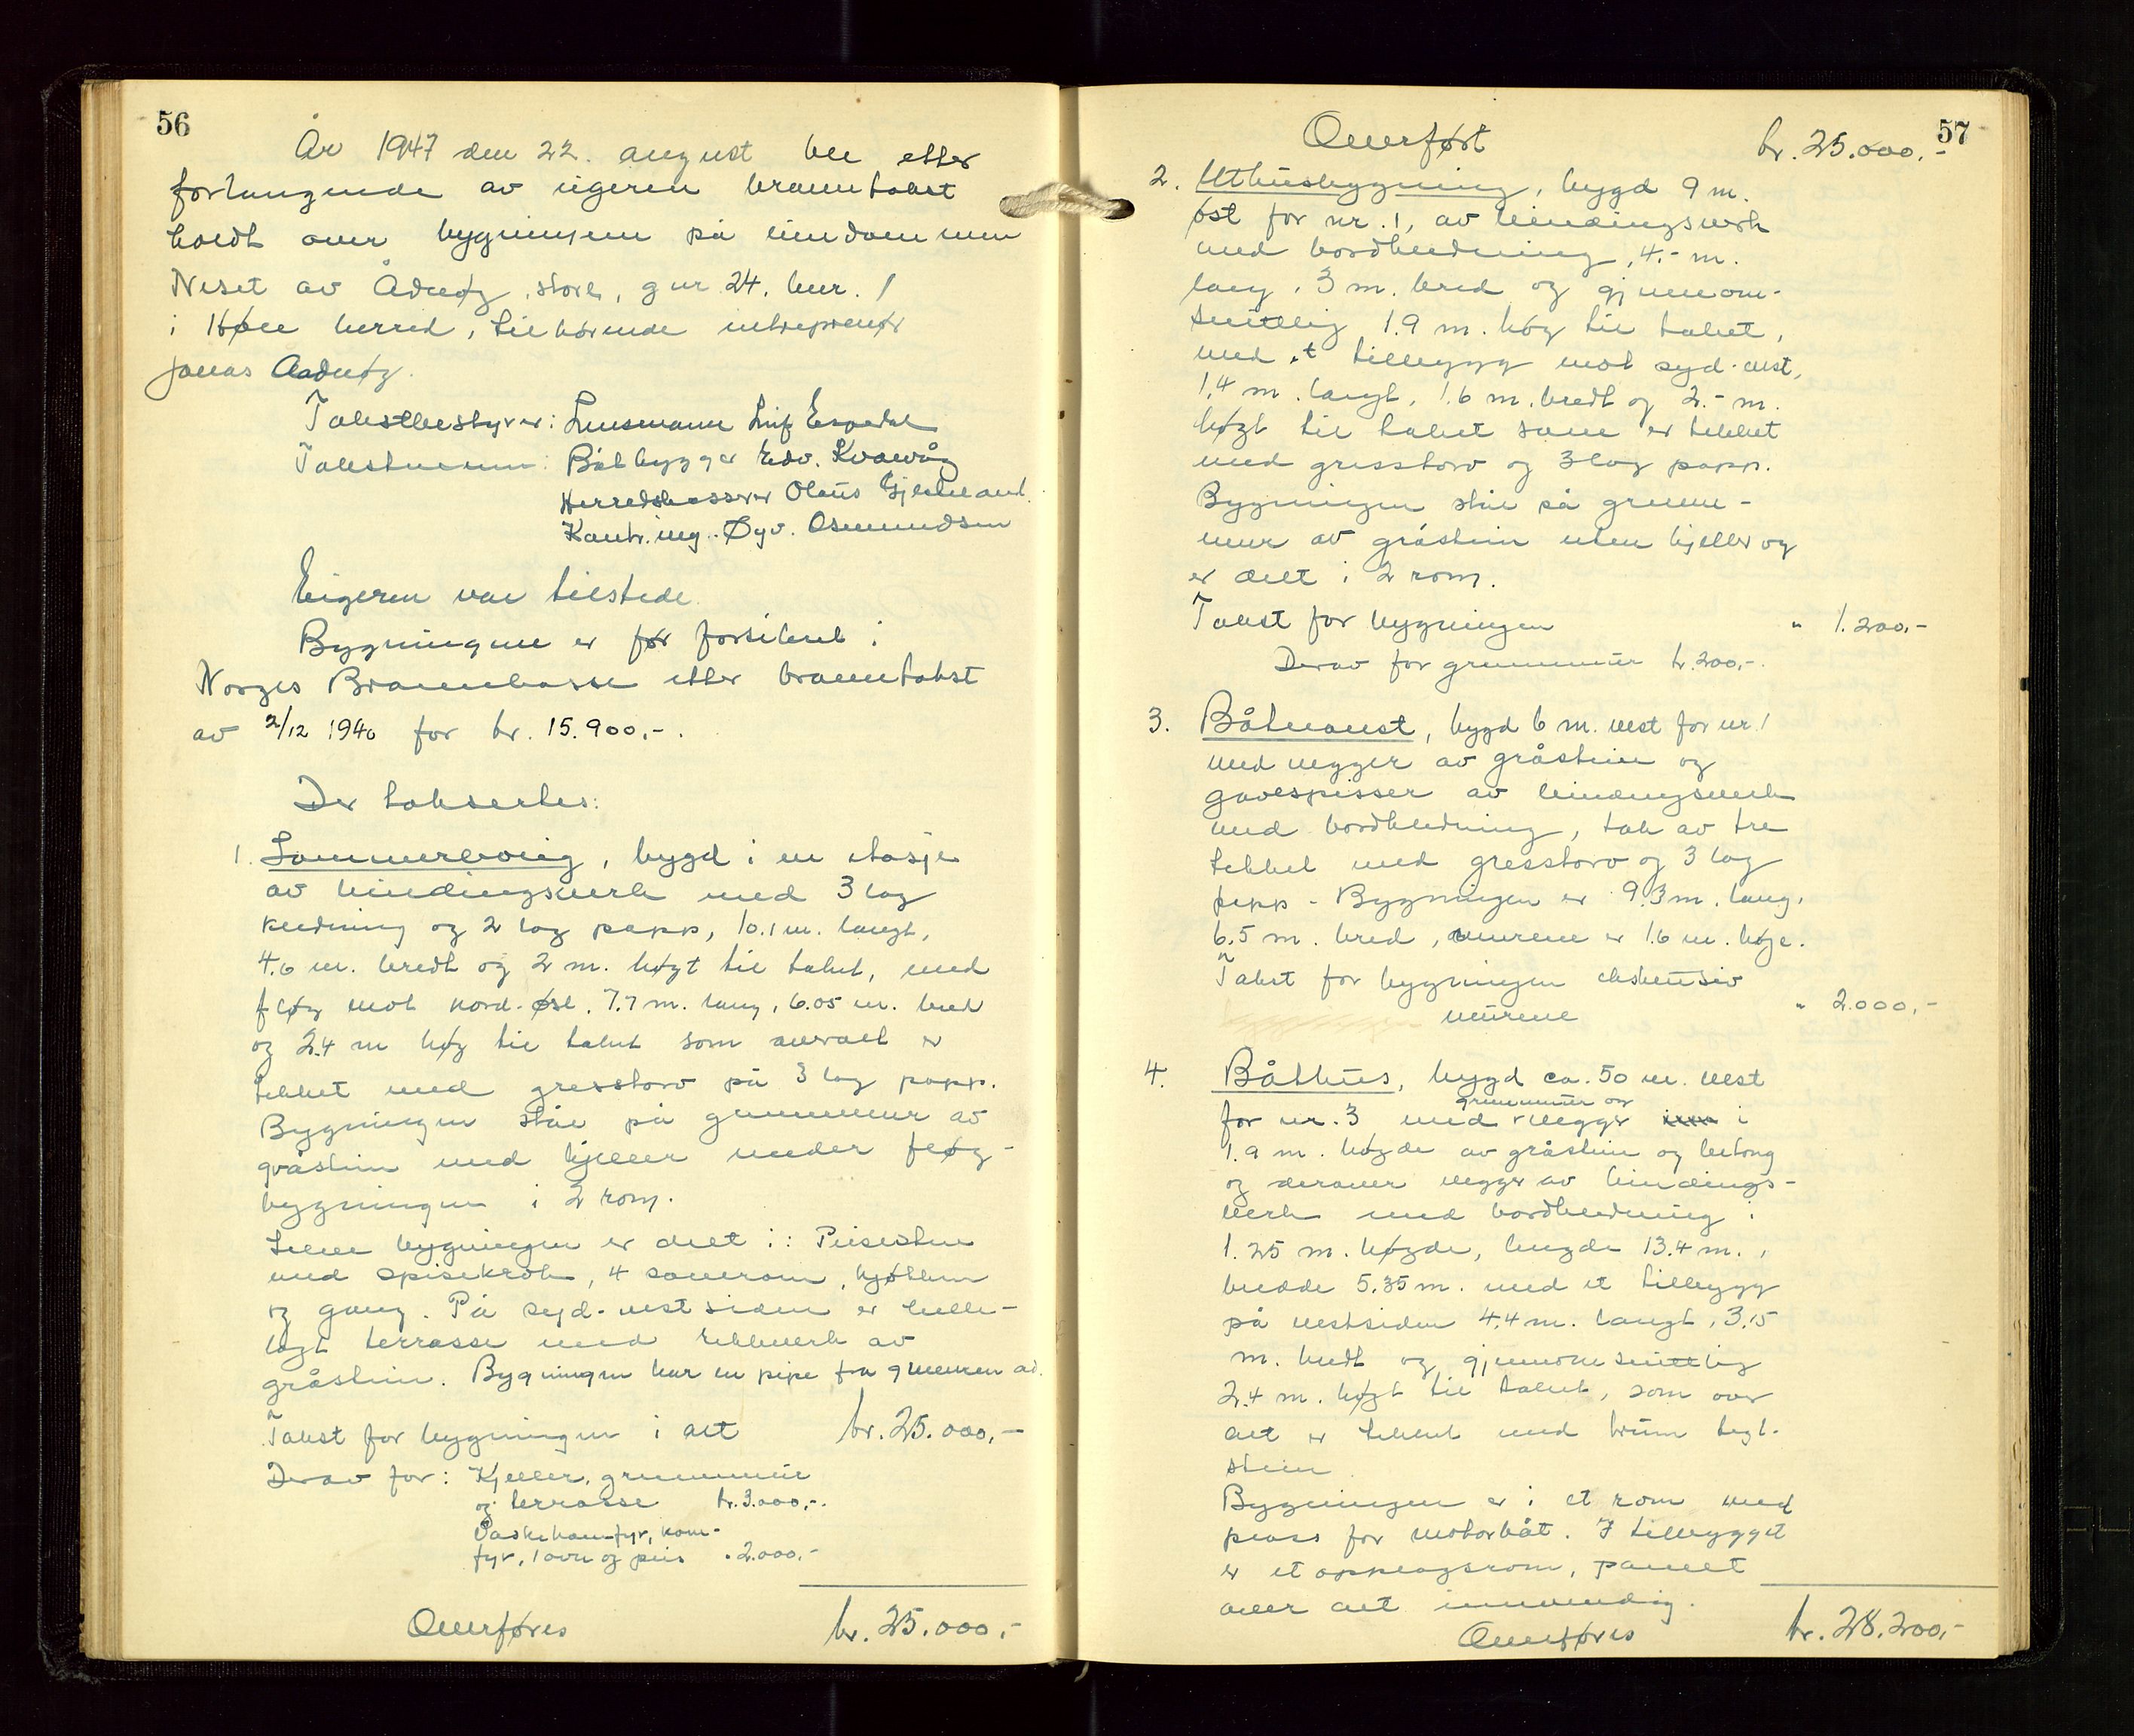 56
År 1947 den 22. august ble etter
forlangende av eigeren branntakst
holdt over bygningene på eiendommen
Neset av Ådnøy, store, g nr. 24, bnr. 1
i Høle herred, tilhørende entreprenør
Jonas Aadnøy.
Takstbestyrer: Lensmann Leif Espedal
Takstmenn: Båtbygger Edv. Kvavåg
Herredskasserer Olaus Gjesteland.
Kontr.ing. Øyv. Osmundsen
Eigeren var tilstede.
Bygningene er før forsikret i
Norges Brannkasse etter branntakst
av 2/12 1940 for kr. 15.900,-.
Der taksertes:
1. Sommerbolig, bygd i en etasje
av bindingsverk med 3 lag
kledning og 2 lag papp, 10.1 m. langt,
4.6 m. bredt og 2 m. høgt til taket, med
fløy mot nord-øst, 7.7 m. lang, 6.05 m. bred
og 2.4 m høg til taket som overalt er
tekket med gresstorv på 3 lag papp.
Bygningen står på grunnmur av
gråstein med kjeller under fløy-
bygningen i 2 rom.
Selve bygningen er delt i: Peisestue
med spisekrok, 4 soverom, kjøkken
og gang. På syd-vest siden er helle-
lagt terrasse med rekkverk av
gråstein. Bygningen har en pipe fra grunnen av.
Takst for bygningen i alt kr. 25.000,-
Derav for: Kjeller, grunnmur
og terrasse kr. 3.000,-.
Vaskekomfyr, kom-
fyr, 1 ovn og peis " 2.000,-
Overføres kr. 25.000,-
57
Overført kr. 25.000,-
2. Uthusbygning, bygd 9 m.
øst for nr. 1, av bindingsverk
med bordkledning, 4.- m.
lang, 3 m. bred og gjennom-
snittlig 1.9 m. høg til taket,
med et tilbygg mot syd-vest,
1.4 m. langt, 1.6 m. bredt og 2.- m.
høgt til taket som er tekket
med gresstorv og 3 lag papp.
Bygningen står på grunn-
mur av gråstein uten kjeller og
er delt i 2 rom.
Takst for bygningen " 1.200,-
Derav for grunnmur kr. 200,-.
3. Båtnaust, bygd 6 m. vest for nr. 1
med vegger av gråstein og
gavlspisser av bindingsverk
med bordkledning, tak av tre
tekket med gresstorv og 3 lag
papp. Bygningen er 9.3 m. lang,
6.5 m. bred, murene er 1.6 m. høge.
Takst for bygningen eksklusiv
murene " 2.000,-
4. Båthus, bygd ca. 50 m. vest
grunnmur og
for nr. 3 med vegger i
1.9 m. høgde av gråstein og betong
og derover vegger av bindings-
verk med bordkledning i
1.25 m. høgde, lengde 13.4 m.,
bredde 5.35 m. med et tilbygg
på vestsiden 4.4 m. langt, 3.15
m. bredt og gjennomsnittlig
2.4 m. høgt til taket, som over
alt er tekket med brun tegl-
stein.
Bygningen er i et rom med
plass for motorbåt. I tilbygget
er et opplagsrom, panelt
over alt innvendig.
Overføres kr. 28.200,-